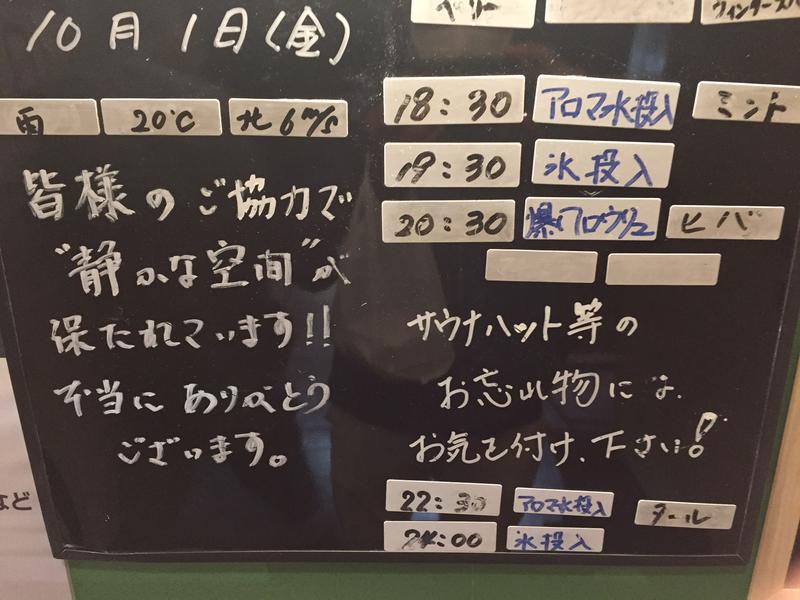 10月1日(金)
雨 20℃ 北6m/s
皆様のご協力で
"静かな空間"が
保たれています!!
本当にありがとう
ございます。
18:30 アロマ水投入 ミント
19:30 氷投入
20:30 爆アロウリュ ヒバ
サウナハット等の
お忘れ物には、
お気を付け、下さい!
22:30 アロマ水投入 タール
24:00 氷投入
など